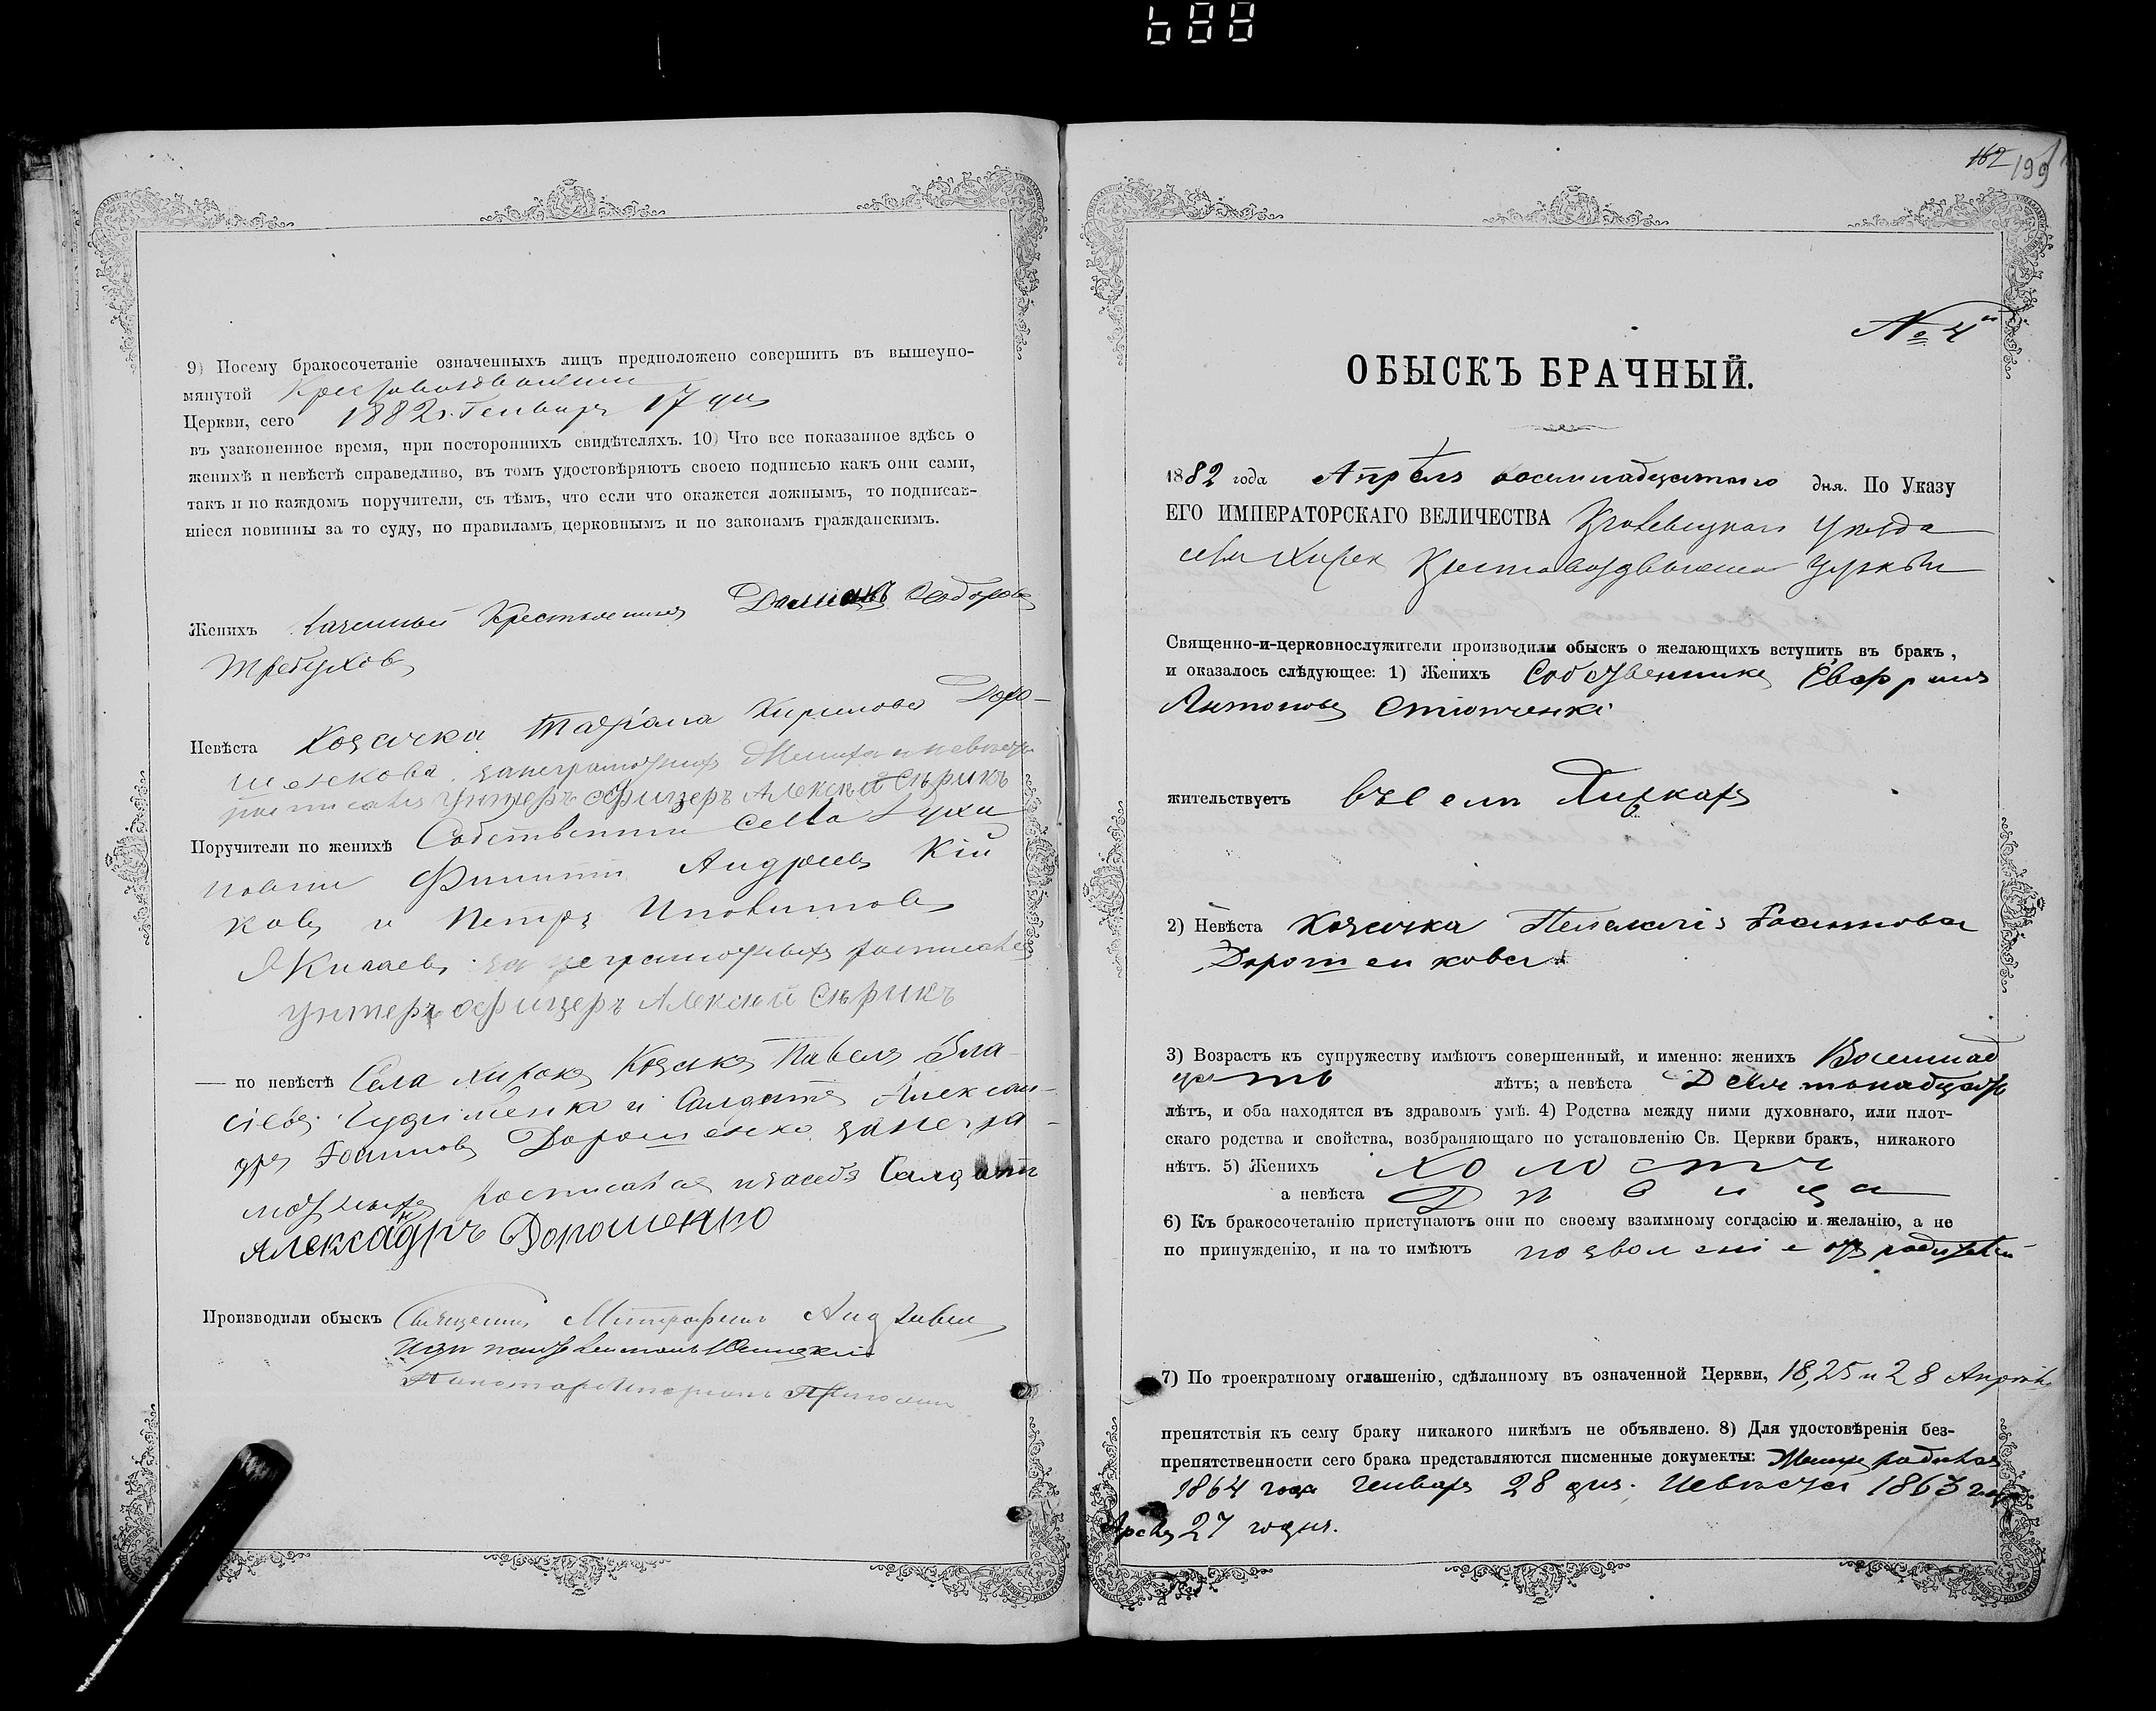 9) Посему бракосочетаніе означенныхъ лицъ предположено совершить въ вышеупо-
мянутой Крестовоздвиженской
Церкви, сего 1882 г. Генваря 17 дня
въ узаконенное время, при постороннихъ свидѣтеляхъ. 10) Что все показанное здѣсь о
женихѣ и невѣстѣ справедливо, въ томъ удостовѣряютъ своею подписью какъ они сами,
такъ и по каждомъ поручители, съ тѣмъ, что если что окажется ложнымъ, то подписав-
шіеся повинны за то суду, по правиламъ церковнымъ и по законамъ гражданскимъ.
Женихъ Казенный Крестьянинъ Ѳедоровъ
Требуховъ
Невѣста Козачка Татіана Кирилова Доро-
шенкова. за неграмотныхъ Жениха и невѣсту
росписался Унтеръ офицеръ Алексѣй Сѣрикъ
Поручители по женихѣ Собственники села
Филиппъ Андреевъ Кій
ковъ и Петръ Иполитовъ
за неграмотныхъ росписался
Унтеръ офицеръ Алексѣй Сѣрикъ
— по невѣстѣ Села Козакъ Павелъ Вла-
сіевъ и Салдатъ Алексан-
дръ Іоанновъ Дорошенко за негра-
мотныхъ росписался и за себя Салдатъ
Александръ Дорошенко
Производили обыскъ Священникъ Митрофанъ
Пономарь
688
162 199
№ 4й
ОБЫСКЪ БРАЧНЫЙ.
1882 года Апрѣля восемнадцатого дня. По Указу
ЕГО ИМПЕРАТОРСКАГО ВЕЛИЧЕСТВА Кролевецкаго Уѣзда
села Крестовоздвиженской Церкви
Священно-и-церковнослужители производили обыскъ о желающихъ вступить въ бракъ,
и оказалось слѣдующее: 1) Женихъ Собственникъ
Антоновъ
жительствуетъ въ селѣ
2) Невѣста Козачка Пелагія Іоаннова
Дорошенкова
3) Возрастъ къ супружеству имѣютъ совершенный, и именно: женихъ Восемнад
цать лѣтъ; а невѣста Девятонадцать
лѣтъ, и оба находятся въ здравомъ умѣ. 4) Родства между ними духовнаго, или плот-
скаго родства и свойства, возбраняющаго по установленію Св. Церкви бракъ, никакого
нѣтъ. 5) Женихъ Холостъ
а невѣста Дѣвица
6) Къ бракосочетанію приступаютъ они по своему взаимному согласію и желанію, а не
по принужденію, и на то имѣютъ позволеніе отъ родителей
7) По троекратному оглашенію, сдѣланному въ означенной Церкви, 18, 25 и 28 Апрѣля
препятствія къ сему браку никакого никѣмъ не объявлено. 8) Для удостовѣренія без-
препятственности сего брака представляются писменные документы: Женихъ родился
1864 года Генваря 28 дня. Невѣста 1863 года
27 дня.